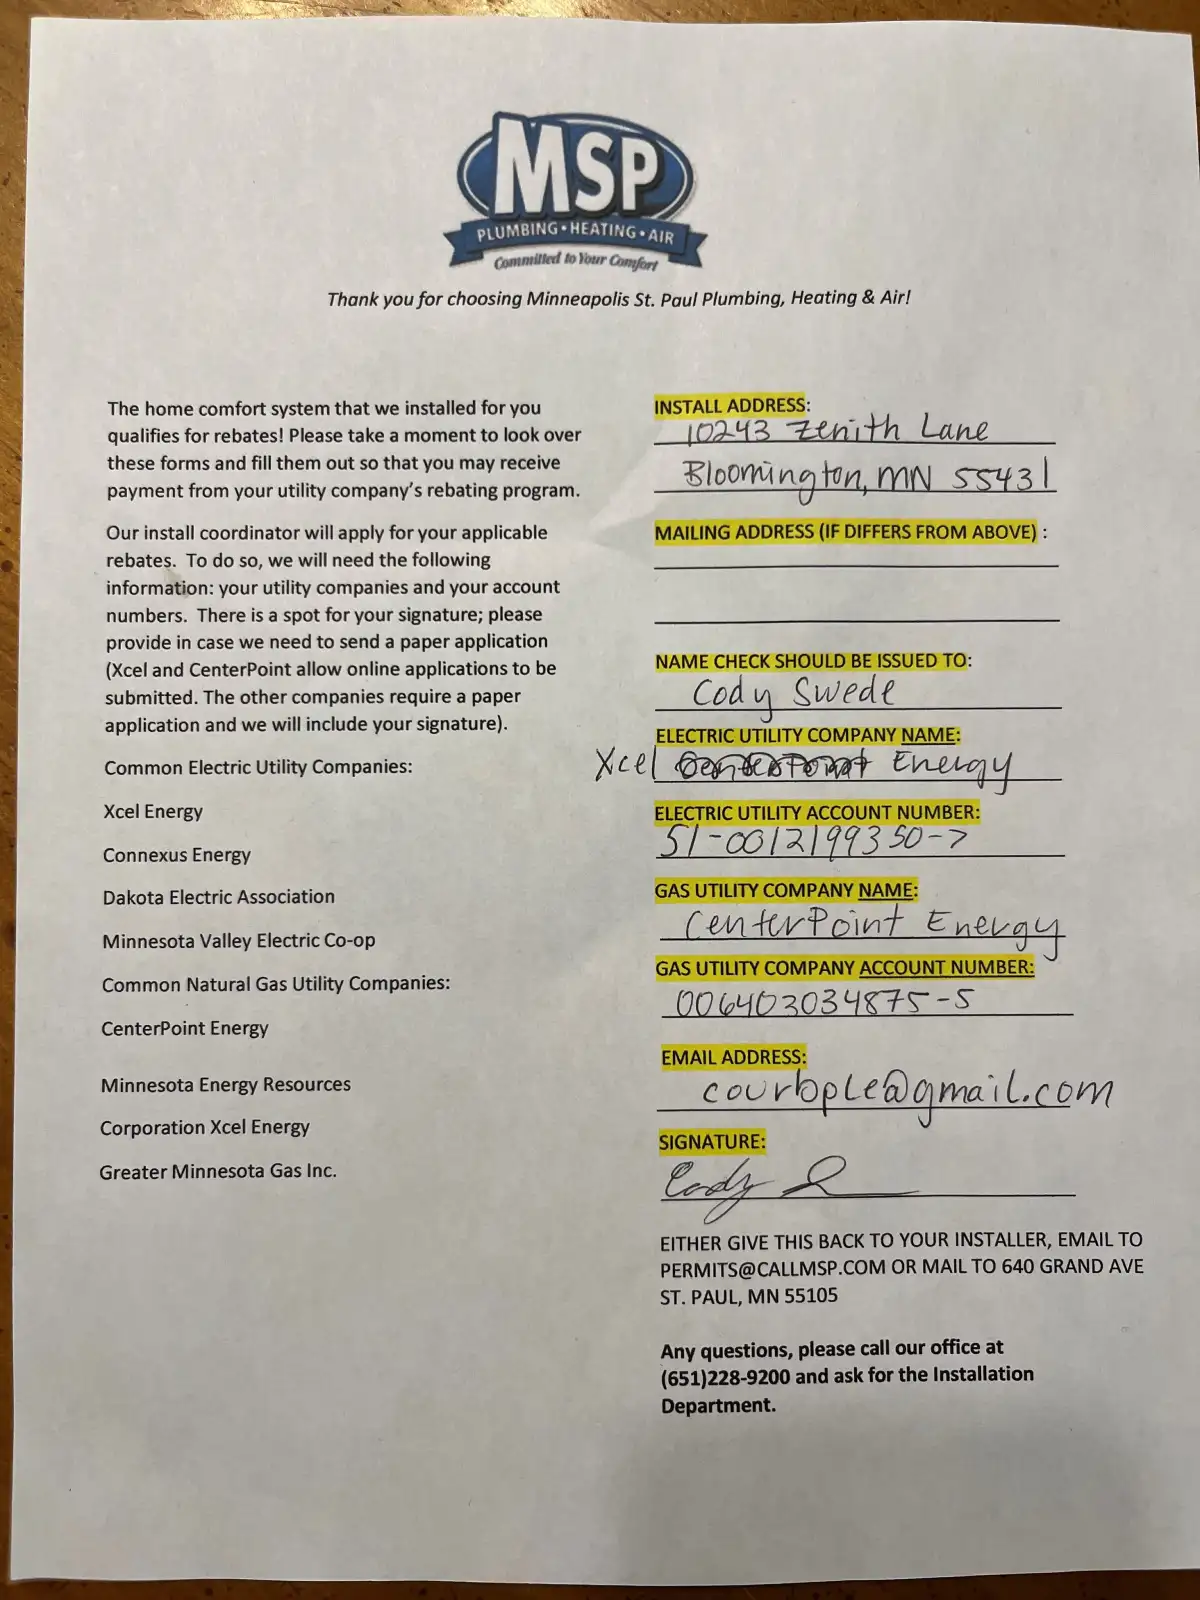 MSP
PLUMBING • HEATING • AIR
Committed to Your Comfort
Thank you for choosing Minneapolis St. Paul Plumbing, Heating & Air!
The home comfort system that we installed for you
qualifies for rebates! Please take a moment to look over
these forms and fill them out so that you may receive
payment from your utility company's rebating program.
Our install coordinator will apply for your applicable
rebates. To do so, we will need the following
information: your utility companies and your account
numbers. There is a spot for your signature; please
provide in case we need to send a paper application
(Xcel and CenterPoint allow online applications to be
submitted. The other companies require a paper
application and we will include your signature).
Common Electric Utility Companies:
Xcel Energy
Connexus Energy
Dakota Electric Association
Minnesota Valley Electric Co-op
Common Natural Gas Utility Companies:
CenterPoint Energy
Minnesota Energy Resources
Corporation Xcel Energy
Greater Minnesota Gas Inc.
INSTALL ADDRESS:
10243 Zenith Lane
Bloomington, MN 55431
MAILING ADDRESS (IF DIFFERS FROM ABOVE) :
NAME CHECK SHOULD BE ISSUED TO:
Cody Swede
ELECTRIC UTILITY COMPANY NAME:
Xcel CenterPoint Energy
ELECTRIC UTILITY ACCOUNT NUMBER:
51-0012199350-7
GAS UTILITY COMPANY NAME:
CenterPoint Energy
GAS UTILITY COMPANY ACCOUNT NUMBER:
006403034875-5
EMAIL ADDRESS:
courbple@gmail.com
SIGNATURE:
Cody S
EITHER GIVE THIS BACK TO YOUR INSTALLER, EMAIL TO
PERMITS@CALLMSP.COM OR MAIL TO 640 GRAND AVE
ST. PAUL, MN 55105
Any questions, please call our office at
(651)228-9200 and ask for the Installation
Department.